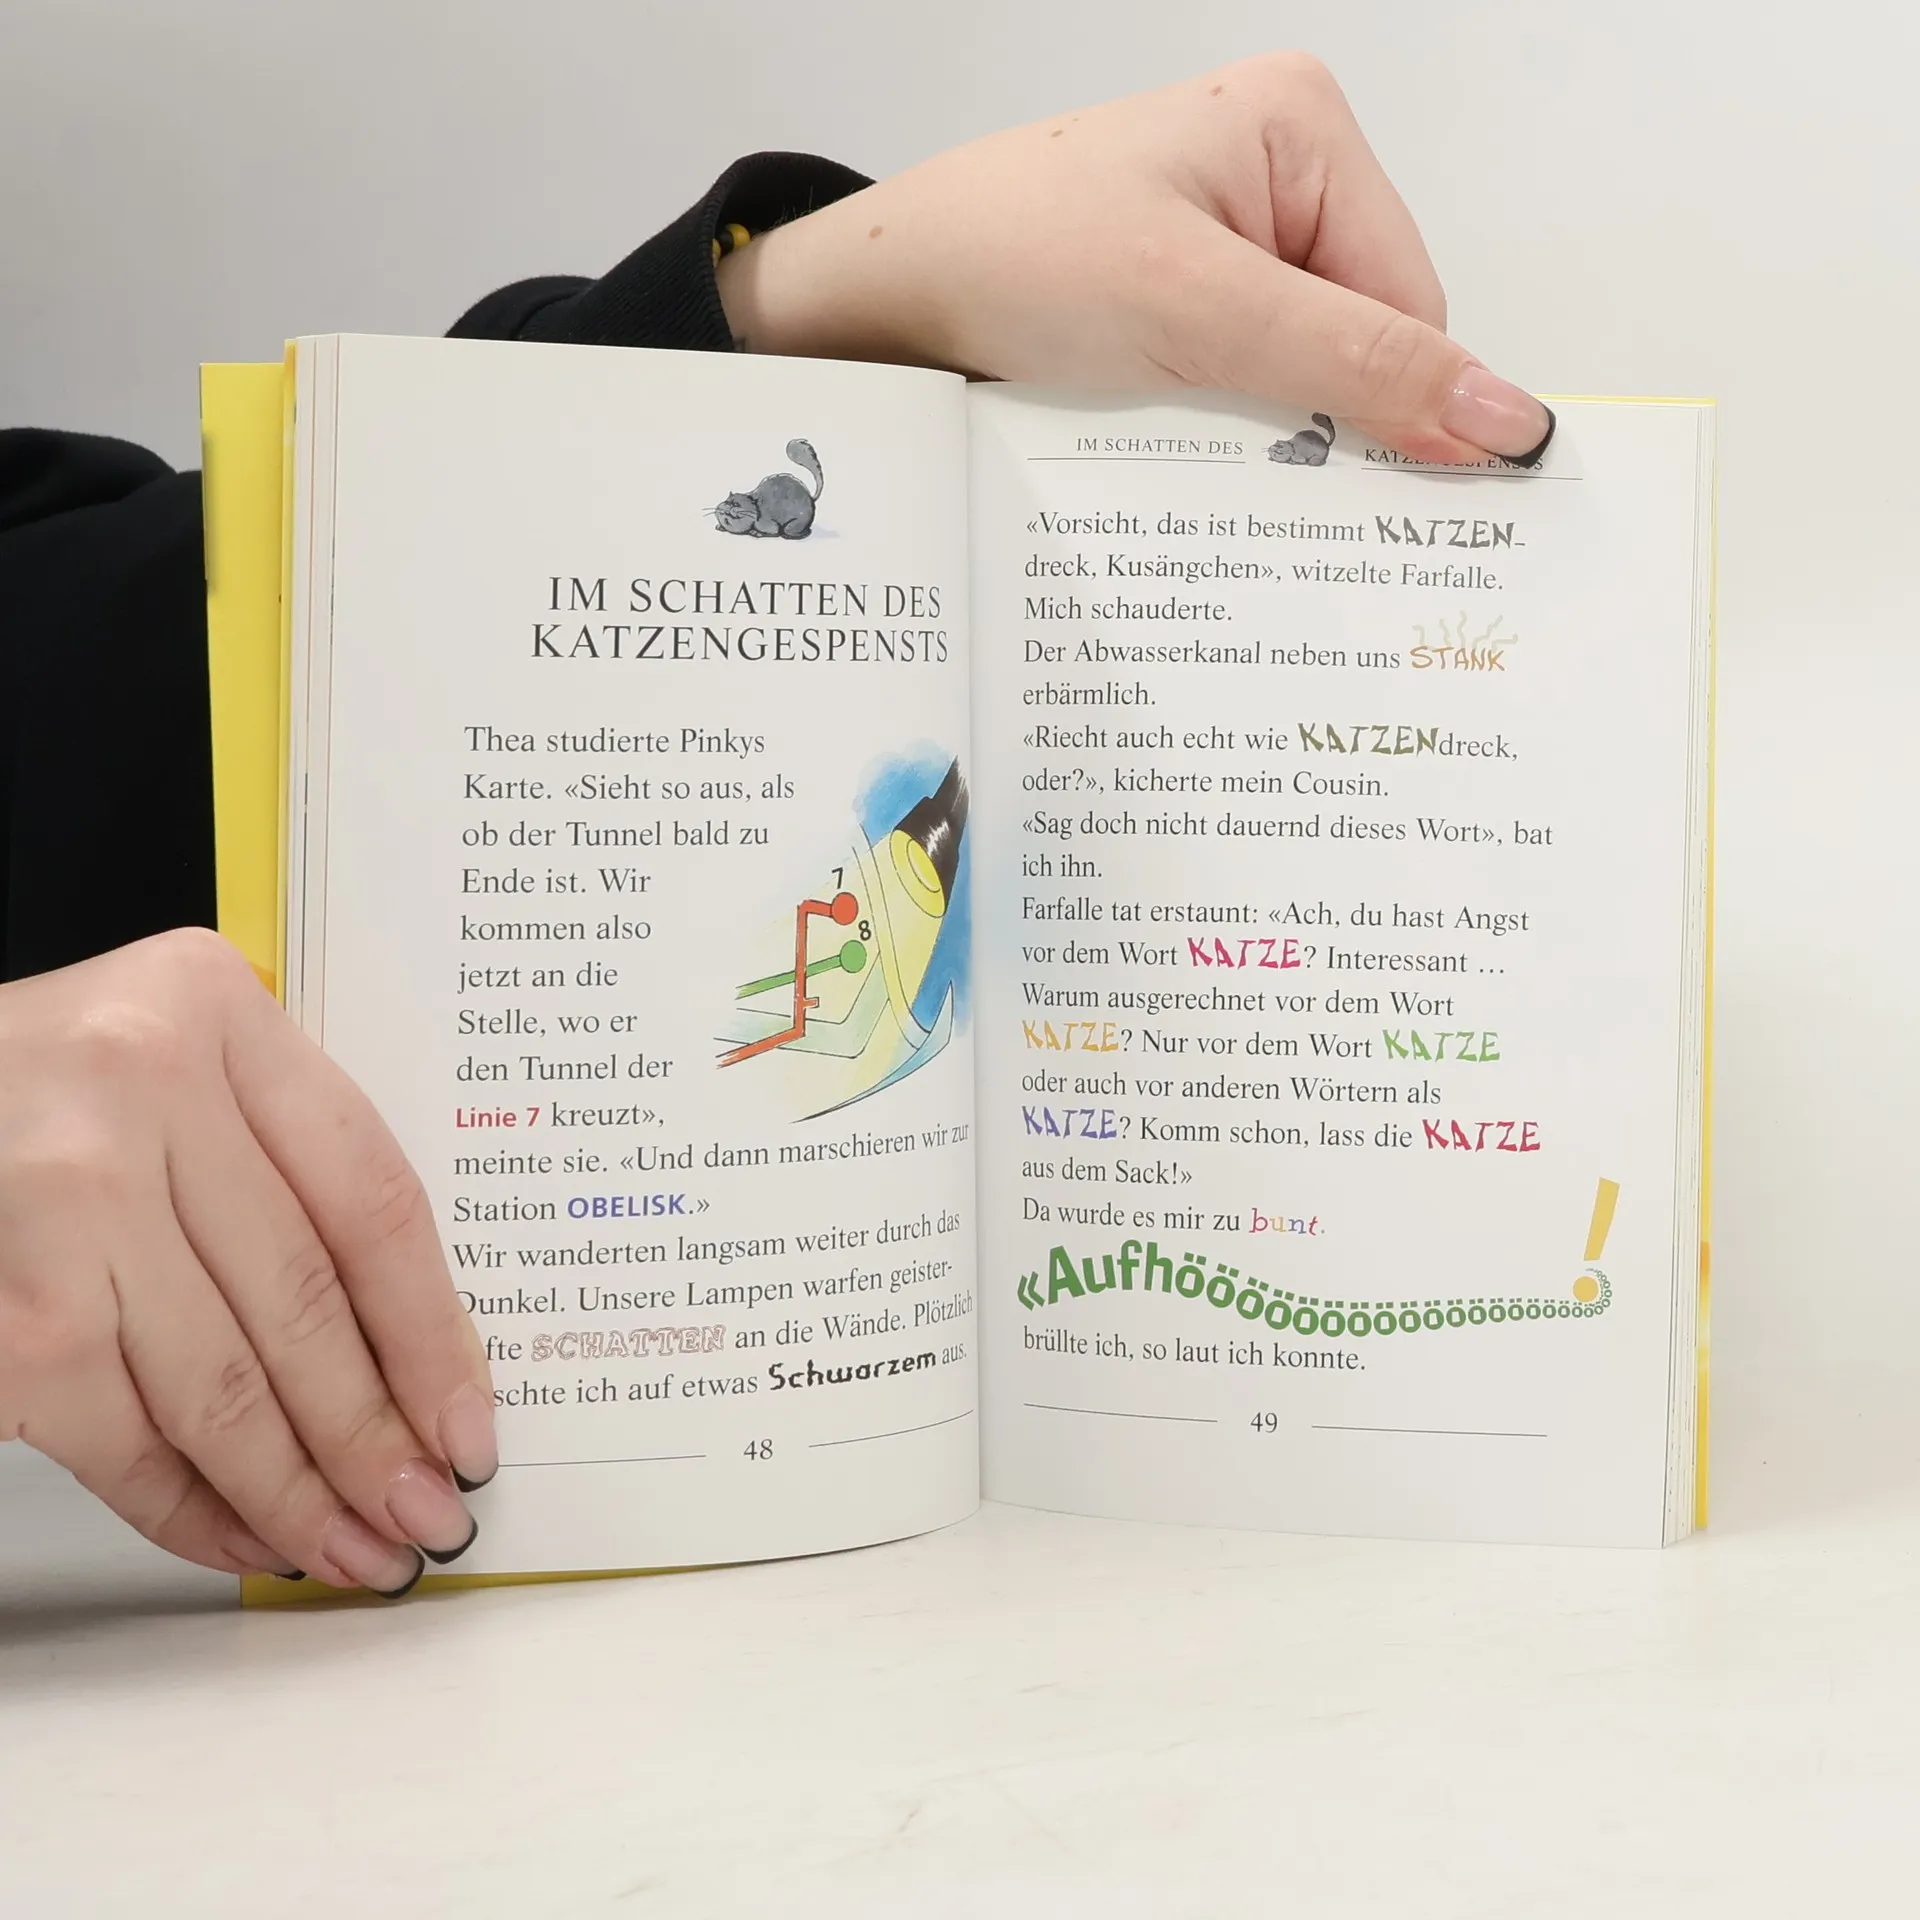 IM SCHATTEN DES
KATZENGESPENSTS
Thea studierte Pinkys
Karte. «Sieht so aus, als
ob der Tunnel bald zu
Ende ist. Wir
kommen also
jetzt an die
Stelle, wo er
den Tunnel der
Linie 7 kreuzt»,
7
8
meinte sie. «Und dann marschieren wir zur
Station OBELISK.»
Wir wanderten langsam weiter durch das
Dunkel. Unsere Lampen warfen geister-
fte SCHATTEN an die Wände. Plötzlich
schte ich auf etwas Schwarzem aus.
48
IM SCHATTEN DES KATZENGESPENSTS
«Vorsicht, das ist bestimmt KATZEN-
dreck, Kusängchen», witzelte Farfalle.
Mich schauderte.
Der Abwasserkanal neben uns STANK
erbärmlich.
«Riecht auch echt wie KATZENdreck,
oder?», kicherte mein Cousin.
«Sag doch nicht dauernd dieses Wort», bat
ich ihn.
Farfalle tat erstaunt: «Ach, du hast Angst
vor dem Wort KATZE? Interessant ...
Warum ausgerechnet vor dem Wort
KATZE? Nur vor dem Wort KATZE
oder auch vor anderen Wörtern als
KATZE? Komm schon, lass die KATZE
aus dem Sack!»
Da wurde es mir zu bunt.
brüllte ich, so laut ich konnte.
49